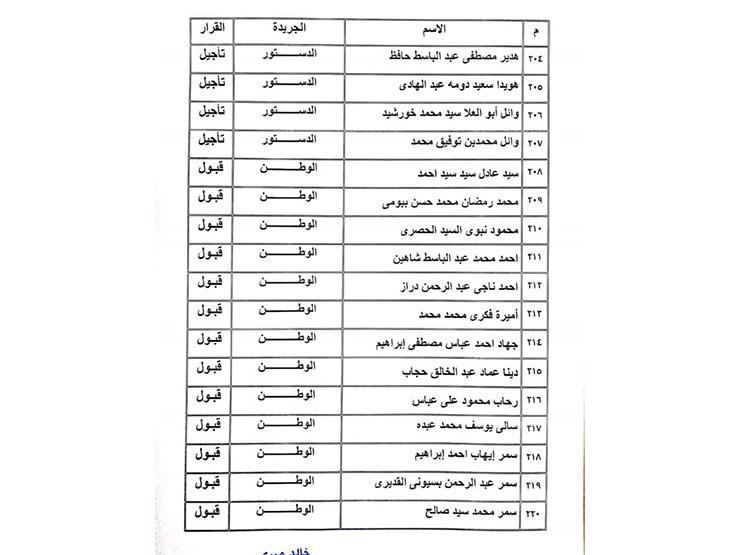 م الاسم الجريدة القرار
٢٠٤ هدير مصطفى عبد الباسط حافظ الدستور تأجيل
٢٠٥ هويدا سعيد دومه عبد الهادى الدستور تأجيل
٢٠٦ وائل أبو العلا سيد محمد خورشيد الدستور تأجيل
٢٠٧ وائل محمدبن توفيق محمد الدستور تأجيل
٢٠٨ سيد عادل سيد سيد احمد الوطن قبول
٢٠٩ محمد رمضان محمد حسن بيومى الوطن قبول
٢١٠ محمود نبوى السيد الحصرى الوطن قبول
٢١١ احمد محمد عبد الباسط شاهين الوطن قبول
٢١٢ احمد ناجى عبد الرحمن دراز الوطن قبول
٢١٣ أميرة فكرى محمد محمد الوطن قبول
٢١٤ جهاد احمد عباس مصطفى إبراهيم الوطن قبول
٢١٥ دينا عماد عبد الخالق حجاب الوطن قبول
٢١٦ رحاب محمود على عباس الوطن قبول
٢١٧ سالى يوسف محمد عبده الوطن قبول
٢١٨ سمر إيهاب احمد إبراهيم الوطن قبول
٢١٩ سمر عبد الرحمن بسيونى القديرى الوطن قبول
٢٢٠ سمر محمد سيد صالح الوطن قبول
خالد